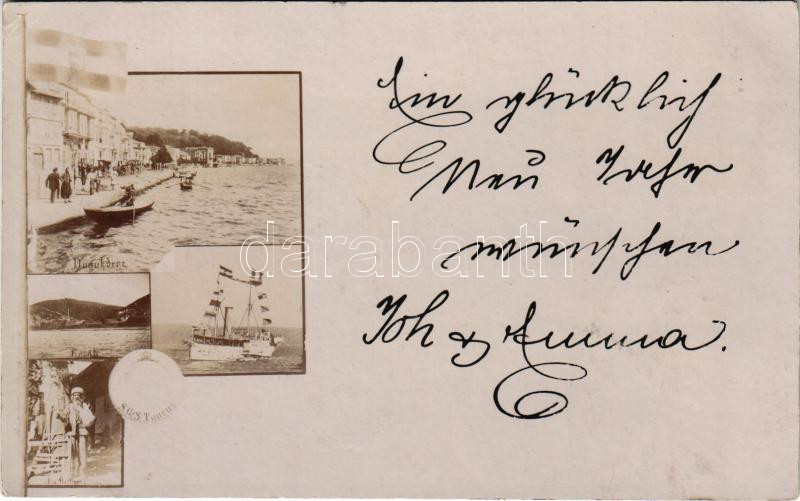 Ein glücklich
Neu Jahr
wünschen
Joh & Emma.
darabanth
S.M.S. Taurus